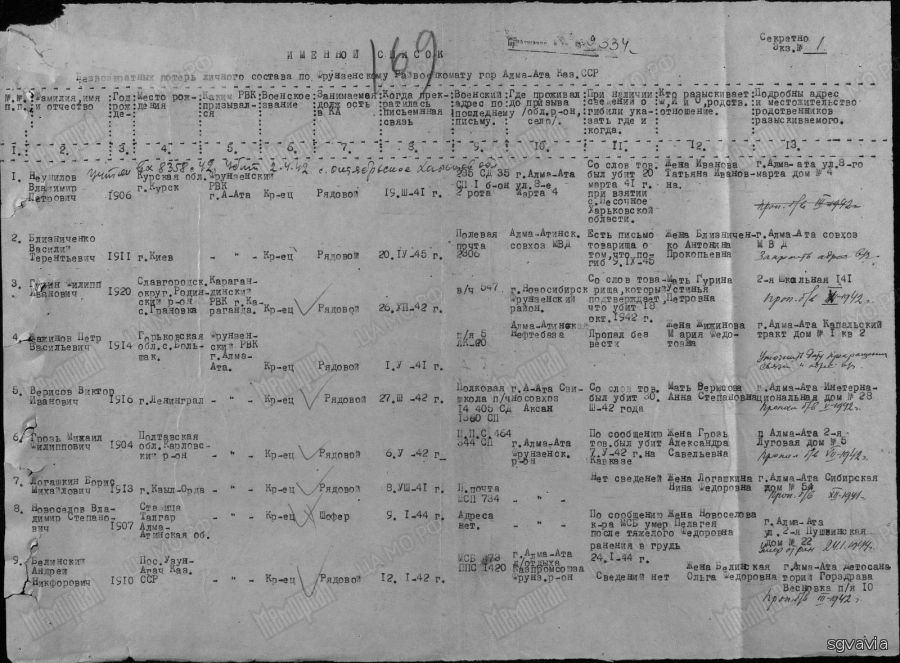 Секретно
Экз.№ 1
169
9534
ИМЕННОЙ СПИСОК
Безвозвратных потерь личного состава по Фрунзенскому Райвоенкомату гор Алма-Ата Каз.ССР
№№ п.п. Фамилия,имя и отчество Год рож- де- Место рож- дения Каким РВК призывал- ся Военское звание Занимаемая должность в КА Когда прек- ратилась письменная связь Военский адрес по последнему письму. Где проживал до призыва /обл.р-он, село/. При наличии сведений о гибили ука- зать где и когда. Кто разыскивает Ф,И и О,родств. отношение. Подробны адрес и местожительство родственников разыскиваемого.
1. 2. 3. 4. 5. 6. 7. 8. 9. 10. 11. 12. 13.
убит 2.4.42
1. Владимир Петрович 1906 Курская обл. г.Курск Фрунзенский РВК г.А-Ата Кр-ец Рядовой 19.Ш-41 г. СД 35 СП 1 б-он 2 рота г.Алма-Ата ул.8-е Марта 4 Со слов тов. был убит 20 марта 41 г. при взятии с.Песочное Харьковской области. Жена Иванова Татьяна Иванов- на. г.Алма-ата ул.8-го марта дом № 4
Проп. б/в III-1942г.
2. Близниченко Василий Терентьевич 1911 г.Киев - " - Кр-ец Рядовой 20.IУ-45 г. Полевая почта 2806 Алма-Атинск. совхоз МВД Есть письмо товарища о том,что по- гиб 9.IУ-45 Жена Близничен- ко Антонина Прокопьевна г.Алма-Ата совхоз М В Д
3. Гурин Филипп Иванович 1920 Славгородск. округ.Родин- ский р-он с.Грановка Караган- динский РВК г.Ка- раганда. Кр-ец Рядовой 26.ХП-42 г. в/ч 547 г.Новосибирск Фрунзенский район. Со слов това- рища,которы подтверждает что убит 18 окт.1942 г. Мать Гурина Устинья Петровна 2-я Школьная 141
Проп. б/в XI-1942г.
4. Жижинов Петр Васильевич 1914 Горьковская обл.с.Боль- шак. Фрунзен- ский РВК г.Алма- Ата. Кр-ец Рядовой 1.У -41 г. п/я 5 ЛК-20 Алма-Атинская Нефтебаза Пропал без вести Жена Жижинова Мария Федо- товна г.Алма-Ата Капальский тракт дом № 1 кв 2
Уточнить дату прекращения связи и адрес в/з.
5. Верисов Виктор Иванович 1916 г.Ленинград - " - Кр-ец Рядовой 27.Ш -42 г. Полковая школа п/ч 14 405 СД 1360 СП г.А-Ата Сви- носовхоз Аксай Со слов тов. был убит 30. Ш-42 года Мать Верисова Анна Степановна г.Алма-Ата Интерна- циональная дом № 28
Пропал б/в V-1942г.
6. Грозь Михаил Филиппович 1904 Полтавская обл.Карловс- кий р-он - " - Кр-ец Рядовой 6.У -42 г. П.П.С.464 344 СП г.Алма-Ата Фрунзенск. р-он По сообщению тов.был убит 7.У-42 г.на Кавказе Жена Грозь Александра Савельевна г Алма-Ата 2-я Луговая дом № 5
Пропал б/в VII-1942г.
7. Логашкин Борис Михайлович 1913 г.Кзыл-Орда - " - Кр-ец Рядовой 8.УШ-41 г. П.почта МСП 734 - " - Нет сведений Жена Логашкина Нина Федоровна г.Алма-Ата Сибирская дом № 5а
Проп. б/в XII-1941г.
8. Новоседов Вла- димир Степано- вич 1907 Станица Талгар Алма- Атинская об. - " - Кр-ец Шофер 9.1-44 г. Адреса нет. - " - По сообщению к-ра МСБ умер после тяжелого ранения в грудь 24.1-44 г. Жена Новоселова Пелагея Федоровна г.Алма-Ата ул.2-я Пушвинская дом № 22
Умер от ран 24.I.1944.
9. Белинский Андрей Никфорович 1910 Пос.Узун- Агач Каз. ССР - " - Кр-ец Рядовой 12.1-42 г. МСБ 473 ППС 1420 г.Алма-Ата д/отдыха Казпромсовза Фрунз.р-он Сведений нет Жена Велинская Ольга Федоровна г.Алма-Ата Метосана торий Горздрава Весновка п/я 10
Проп. б/в III-1942г.
sgvavia